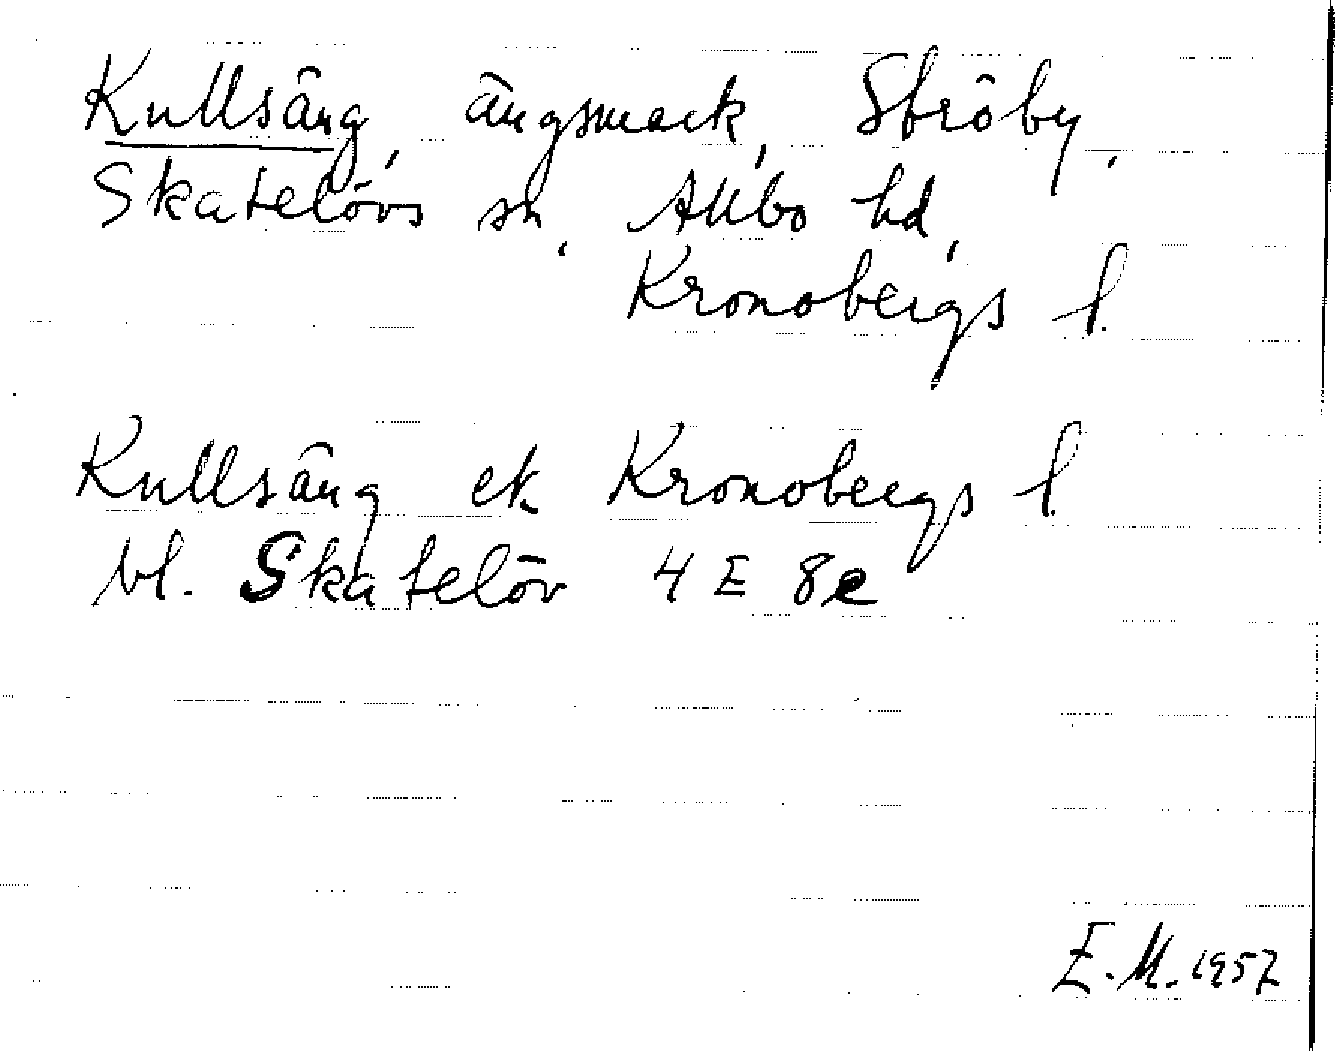 Kullsäng, ängsmark, Ströby,
Skatelövs sn, Allbo hd,
Kronobergs l.
Kullsäng ek Kronobergs l.
bl. Skatelöv 4 E 8e
E.M. 1957